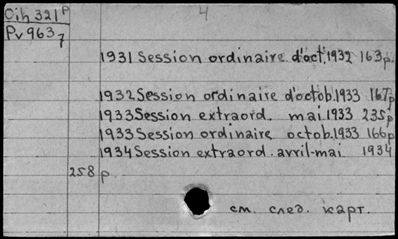 Oih 321 p
4
Pv 963 7
1931 Session ordinaire d'oct. 1932 163 p.
1932 Session ordinaire d'octob. 1933 167 p.
1933 Session extraord. mai. 1933 235 p
1933 Session ordinaire octob. 1933 166 p
1934 Session extraord. avril-mai 1934
258 p.
см. след. карт.